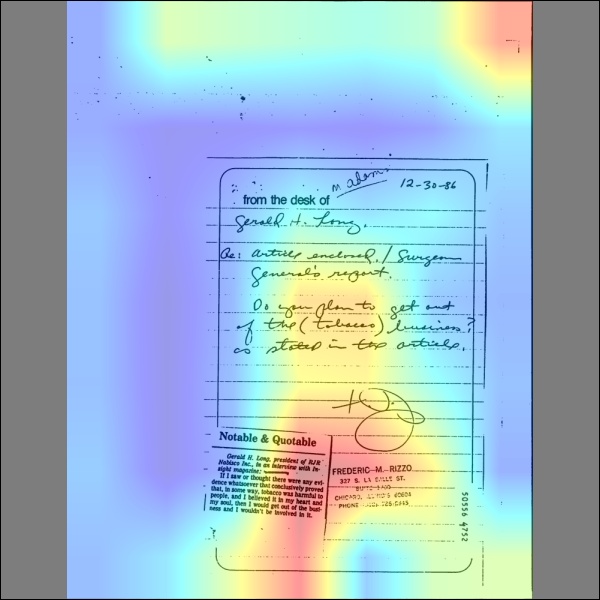 M Adams
12-30-86
from the desk of
Gerald H. Long.
Re: article enclosed. / Surgeon
General's report.
Do you plan to get out
of the (tobacco) business?
as stated in the article.
Notable & Quotable
Gerald H. Long, president of RJR
Nabisco Inc., in an interview with In-
sight magazine:
If I saw or thought there were any evi-
dence whatsoever that conclusively proved
that, in some way, tobacco was harmful to
people, and I believed it in my heart and
my soul, then I would get out of the busi-
ness and I wouldn't be involved in it.
FREDERIC M. RIZZO
327 S. LA SALLE ST.
CHICAGO, ILLINOIS 60604
PHONE
50556 4752